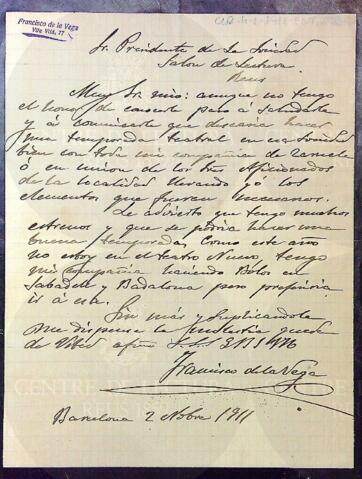 Francisco de la Vega
Vila Vilá, 77
Sr. Presidente de La Sociedad
Salon de Lectura
Reus
Muy Sr. mio: aunque no tengo
el honor de conocerle paso a saludarle
y á comunicarle que desearia hacer
una temporada teatral en esa Sociedad
bien con toda mi compañia de Zarzuela
ó en union de los Sres Aficionados
de la localidad llevando yo los
elementos que fueran necesarios.
Le advierto que tengo muchos
estrenos y que se podria hacer una
buena temporada. Como este año
no estoy en el teatro Nuevo tengo
mi compañia haciendo Bolos en
Sabadell y Badalona pero preferiria
ir á esa.
Sin más y suplicandole
me dispense la molestia queda
de Usted afmo
Francisco de la Vega
Barcelona 2 Nobre 1911
CENTRE DE LECTURA